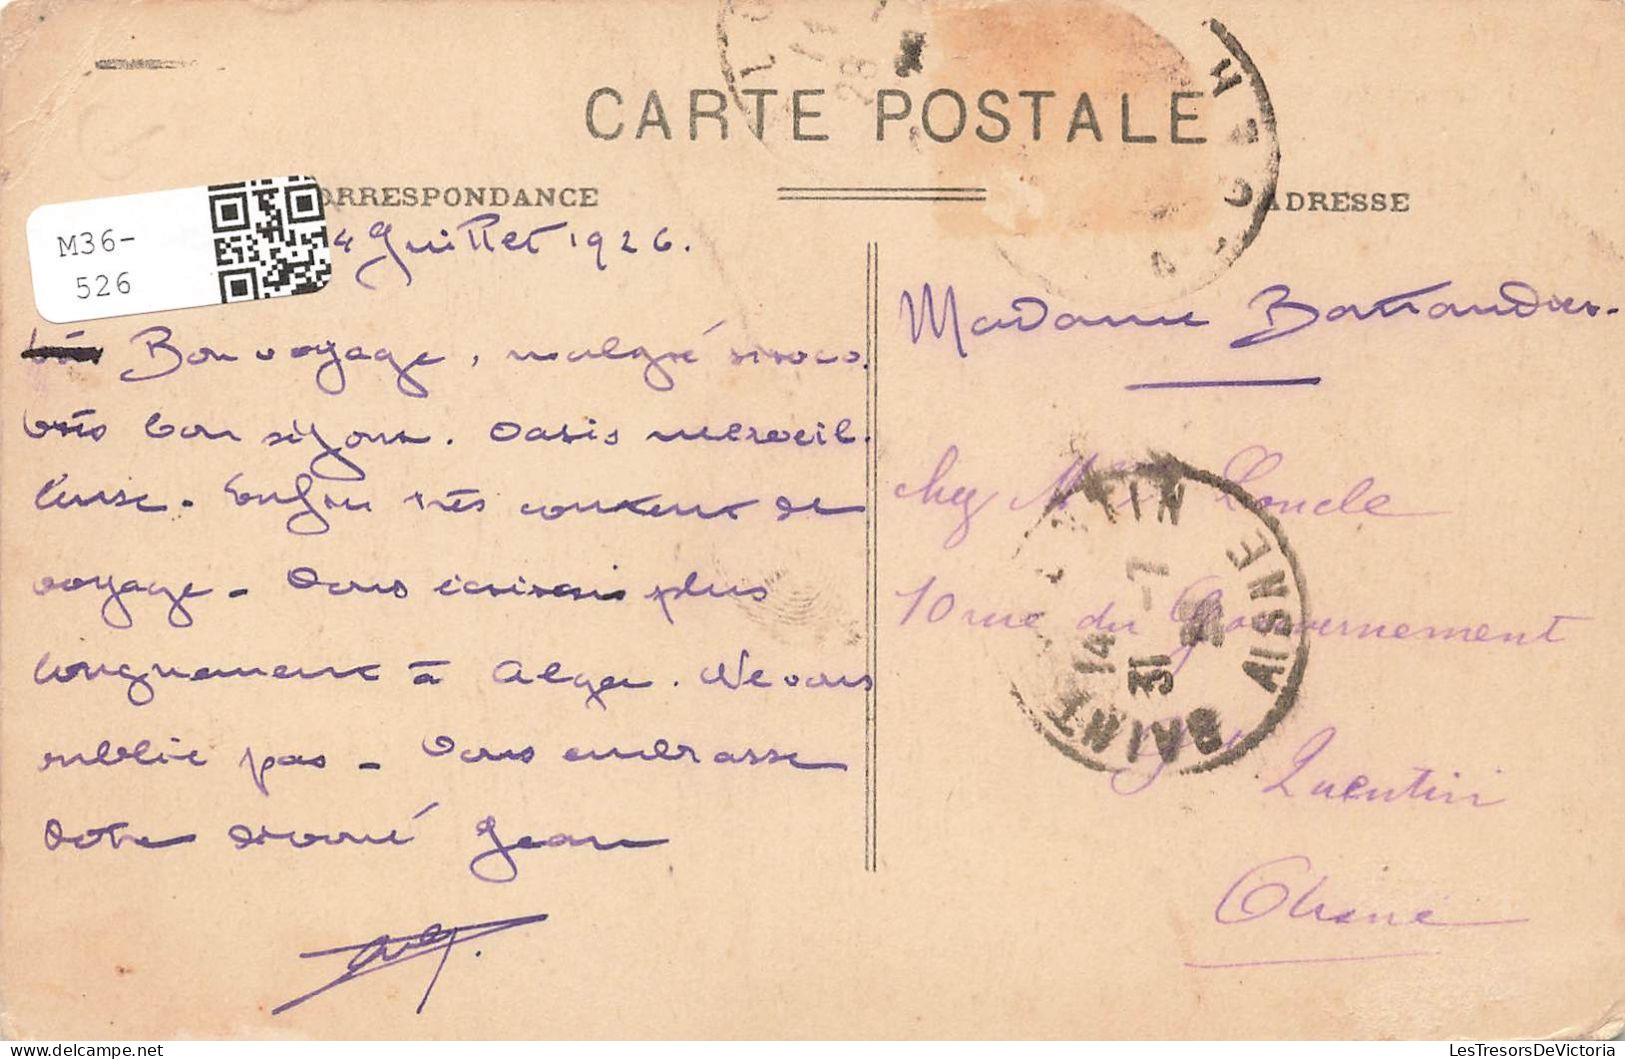 CARTE POSTALE
ORRESPONDANCE
ADRESSE
M36-
526
4 Juillet 1926.
Bon voyage, malgré siroco.
très bon séjour. Oasis merveil.
leuse. Enfin très content de
voyage - Vous écrirai plus
longuement à Alger. Ne vous
oublie pas - Vous embrasse
Votre dévoué Jean
Madame
chez Mme Loncle
10 rue du Gouvernement
St Quentin
Aisne
SAINT QUENTIN AISNE
14
31 -7
LesTresorsDeVictoria